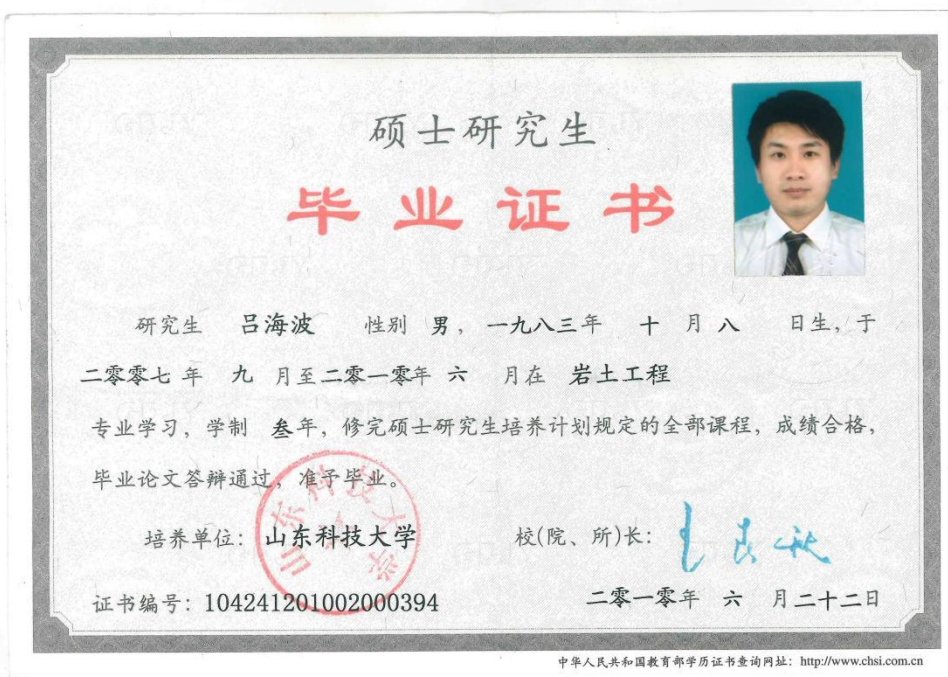 硕士研究生
毕业证书
研究生 吕海波 性别 男，一九八三年 十 月 八 日生，于
二零零七 年 九 月至二零一零年 六 月在 岩土工程
专业学习，学制 叁年，修完硕士研究生培养计划规定的全部课程，成绩合格，
毕业论文答辩通过，准予毕业。
山东科技大学
培养单位：山东科技大学 校(院、所)长：
证书编号：104241201002000394 二零一零年 六 月二十二日
中华人民共和国教育部学历证书查询网址：http://www.chsi.com.cn